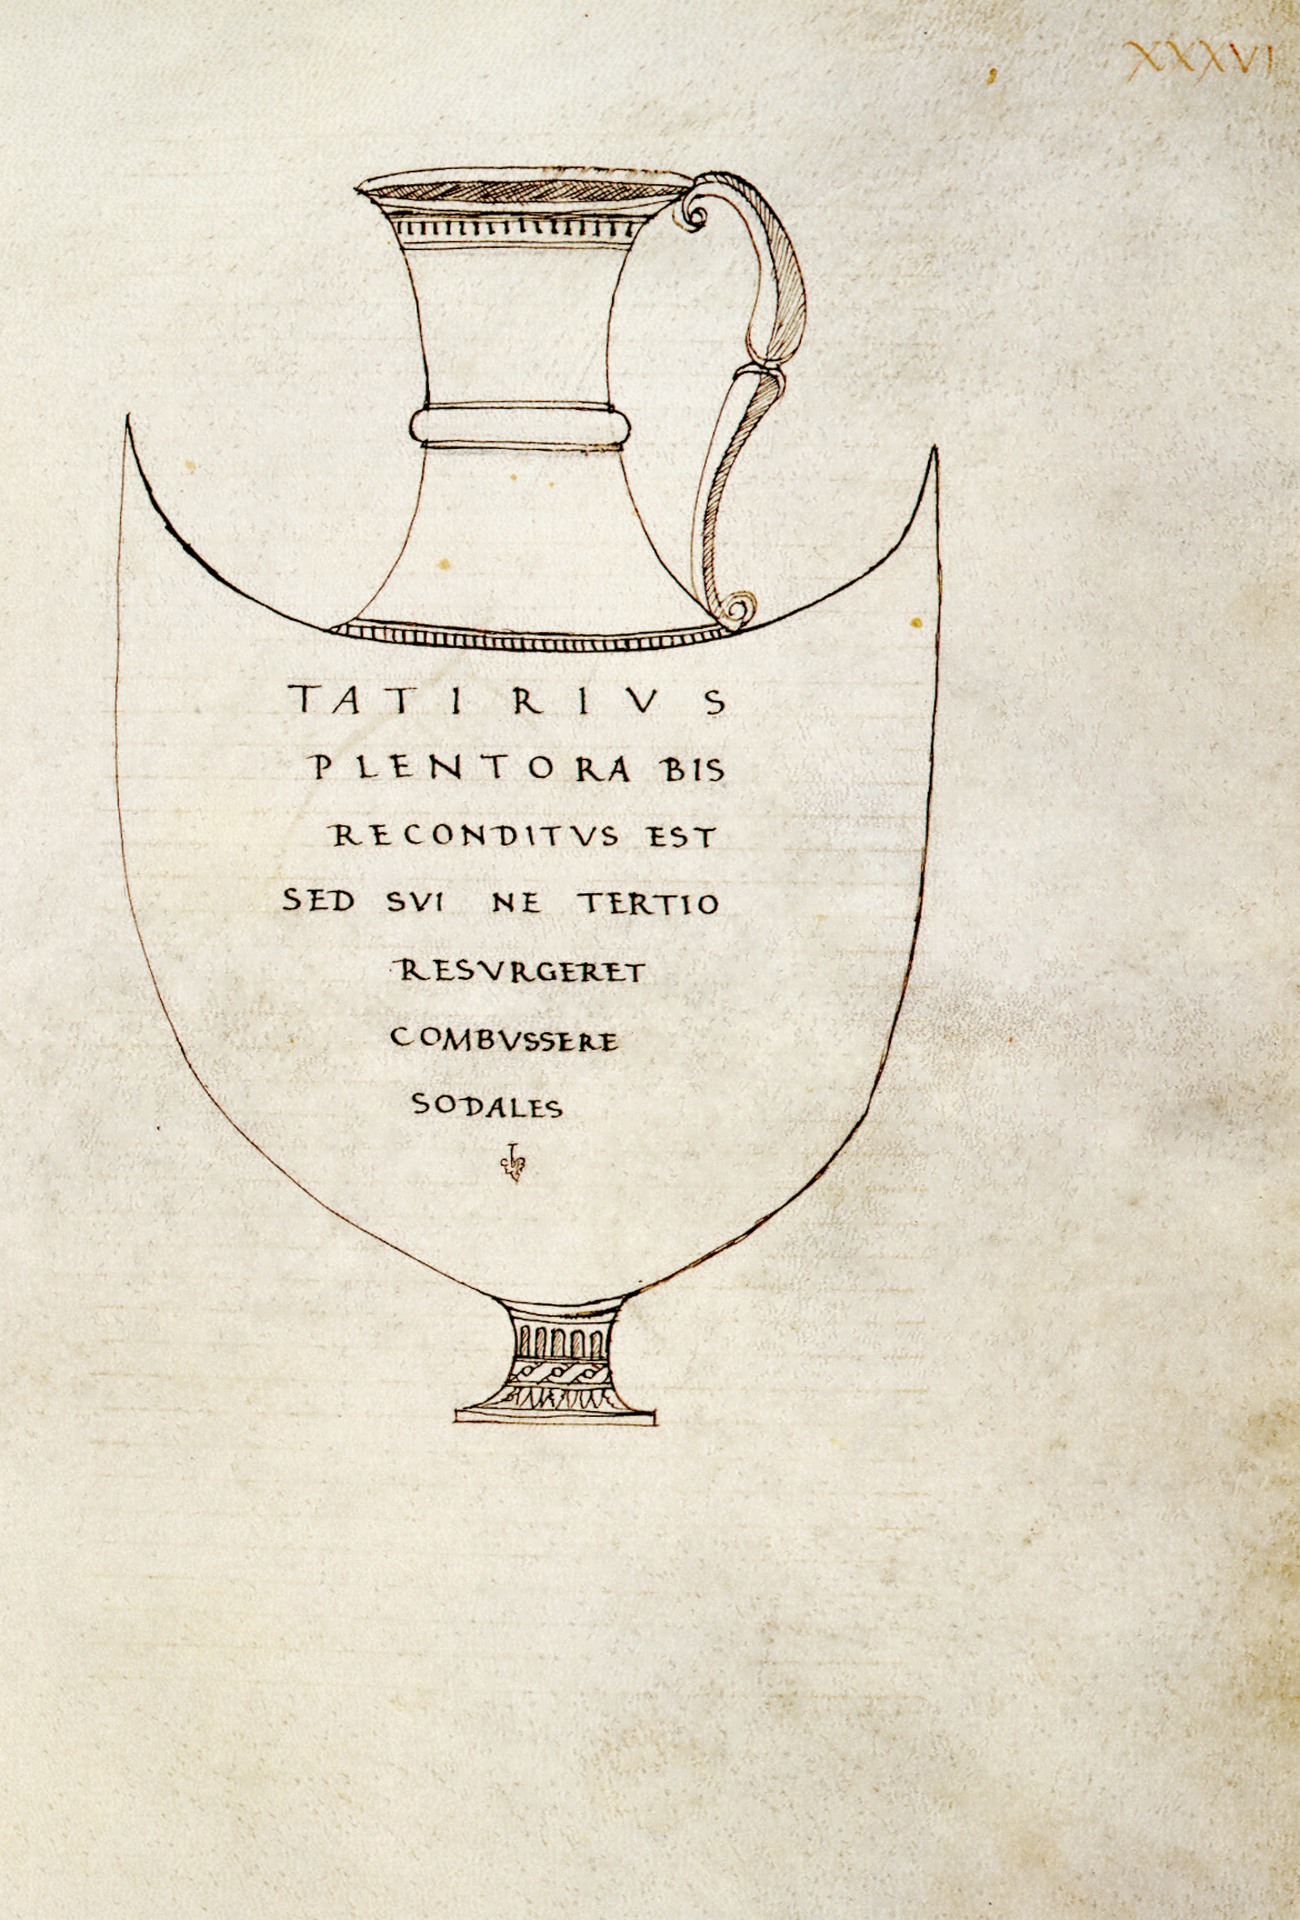 XXXVI
TATIRIVS
PLENTORA BIS
RECONDITVS EST
SED SVI NE TERTIO
RESVRGERET
COMBVSSERE
SODALES